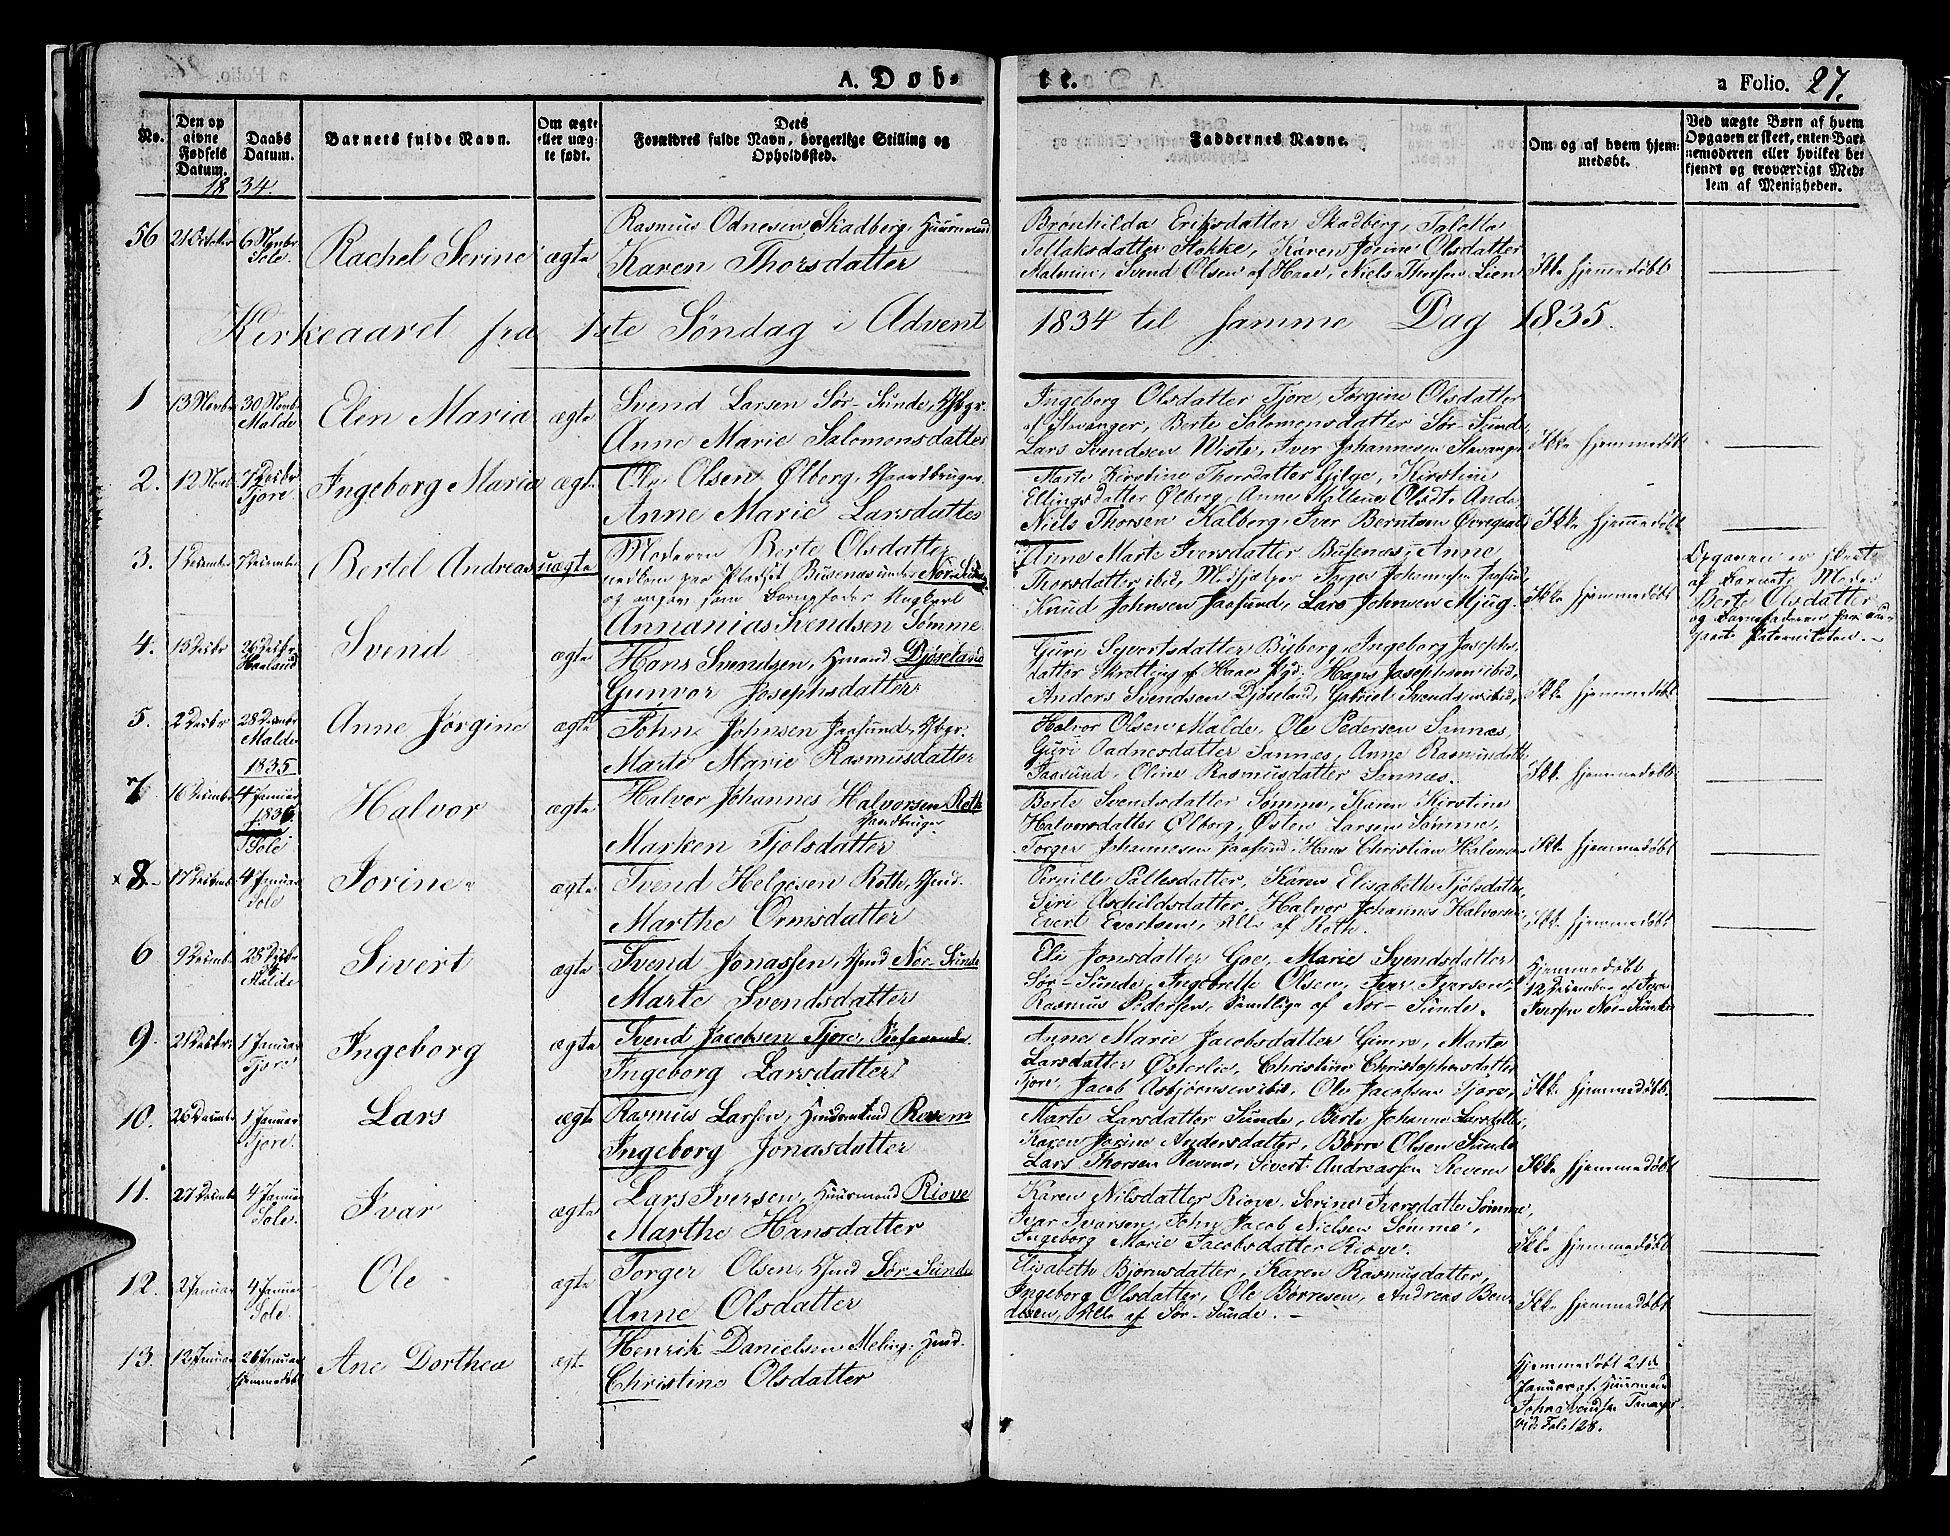 A. Døbte.
a Folio. 27.
No.
Den opgivne Fødsels Datum.
Daabs Datum.
Barnets fulde Navn.
Om ægte eller uægte født.
Dets Forældres fulde Navn, borgerlige Stilling og Opholdssted.
Faddernes Navne.
Om og af hvem hjemmedøbt.
Ved uægte Børn af hvem Opgaven er skeet, enten Barnemoderen eller hvilket bekjendt og troværdigt Medlem af Menigheden.
1834.
56 21 October 6 Novbr Sole. Rachel Serine ægte
Rasmus Odnesen Skadberg, Huusmand
Karen Thorsdatter
Brønhilda Eriksdatter Skadberg, Taletta
Tollaksdatter Stokke, Karen Jorine Olsdatter
Malmin, Svend Olsen af Haae, Niels Thorsen Lien
Ikke hjemmedøbt
Kirkeaaret fra 1ste Søndag i Advent 1834 til samme Dag 1835.
1 13 Novbr 30 Novb. Malde Elen Maria ægte
Svend Larsen Sør-Sunde, Gbgr.
Anne Marie Salomonsdatter
Ingeborg Olsdatter Tjore, Jørgine Olsdatter
af Stavanger, Berte Salomonsdatter Sør-Sunde,
Lars Svendsen Wiste, Iver Johannesen Stavanger
Ikke hjemmedøbt
2. 12 Novb 7 Desbr Tjore Ingeborg Maria ægte
Ole Olsen Ølberg, Gaardbruger
Anne Marie Larsdatter
Marte Kirstine Thorsdatter Gilge, Kirstine
Ellingsdatter Ølberg, Anne Malene Olsdt. Anda
Niels Thorsen Kalberg, Iver Berntsen
Ikke hjemmedøbt
3. 1 December 7 December Bertel Andreas uægte
Moderen Berte Olsdatter
Pladset Busenæs under Nor-Sunde
og angav som Barnefader Ungkarl
Annanias Svendsen Sømme
Anne Marte Iversdatter Busenæs, Anne
Thorsdatter ibid, Torger Johannesen Jaasund
Knud Johnsen Jaasund, Lars Johnsen Mjug.
Ikke hjemmedøbt
Opgaven er skeet
af Barnets Moder
Berte Olsdatter
og Barnefaderen
Paterniteten.
4. 13 Desbr 26 Desbr Haaland Svend ægte
Hans Svendsen, Gmand Djøseland
Gunvor Josephsdatter
Guri Syvertsdatter Byberg, Ingeborg Josephs-
datter Skretting af Haae Pgd. Hans Josephsen ibid,
Anders Svendsen Djøseland, Gabriel Svendsen ibid,
Ikke hjemmedøbt
5. 2 Desbr 28 Decmbr Malde Anne Jørgine ægte
John Johnsen Jaasund, Gbgr.
Marte Marie Rasmusdatter
Halvor Olsen Malde, Ole Pedersen Sannæs,
Guri Aadnesdatter Sannæs, Anne Rasmusdatter
Jaasund, Oline Rasmusdatter Sannæs.
Ikke hjemmedøbt
1835
7 16 December 4 Januar 1835 Sole Halvor ægte
Halvor Johannes Halvorsen Roth
Gaardbruger
Marken Tjolsdatter
Berte Svendsdatter Sømme, Karen Kirstine
Halvorsdatter Ølberg, Østen Larsen Sømme,
Torger Johannesen Jaasund, Hans Christian Halvorsen
Ikke hjemmedøbt
x 8 17 Decemb. 4 Januar Sole Jorine ægte
Svend Helgesen Roth, Gmd.
Marthe Ormsdatter
Pernille Pallesdatter, Karen Elisabeth Tjolsdatter,
Siri Aschildsdatter, Halvor Johannes Halvorsen,
Evert Evertsen, Alle af Roth.
Ikke hjemmedøbt
6 9 Decemb. 28 Desbr Malde Sivert ægte
Svend Jonassen, Gmd Nor-Sunde
Marte Svendsdatter
Eli Jonsdatter Goe, Marie Svendsdatter
Sør-Sunde, Ingebrett Olsen, Iver Iversen,
Rasmus Pedersen, Samtlige af Nor-Sunde.
Hjemmedøbt
12 December af Iver
Iversen Nor-Sunde
9. 21 Desbr. 1 Januar Tjore Ingeborg ægte
Svend Jacobsen Tjore, Søefarende
Ingeborg Larsdatter
Anne Marie Jacobsdatter Gimre, Marte
Larsdatter Østerlie, Christine Christophersdatter
Tjore, Jacob Asbjørnsen ibid, Ole Jacobsen Tjore,
Ikke hjemmedøbt
10. 26 December 1 Januar Tjore Lars ægte
Rasmus Larsen, Huusmand Reven
Ingeborg Jonasdatter
Marte Larsdatter Sunde, Berte Johanne Larsdatter,
Karen Jorine Andersdatter, Børre Olsen Sunde
Lars Thorsen Revene, Sivert Andreassen Revene
Ikke hjemmedøbt
11. 27 December 4 Januar Sole. Ivar ægte
Lars Iversen, Huusmand Risve
Marthe Hansdatter
Karen Nilsdatter Risve, Serine Iversdatter Sømme,
Ivar Ivarsen, John Jacob Nielsen Sømme,
Ingeborg Marie Jacobsdatter Risve.
Ikke hjemmedøbt
12. 2 Januar 4 Januar Sole. Ole ægte
Torger Olsen, Gmd Sør-Sunde
Anne Olsdatter
Elisabeth Bjørnsdatter, Karen Rasmusdatter,
Ingeborg Olsdatter, Ole Børresen, Andreas Ben-
desen, Alle af Sør-Sunde. -
Ikke hjemmedøbt
13. 12 Januar 26 Januar hjemmedøbt Ane Dorthea ægte
Henrik Danielsen Meling, Gmd.
Christine Olsdatter
Hjemmedøbt 21de
Januar af Huusmand
John Svendsen Tananger
vide Fol. 128.